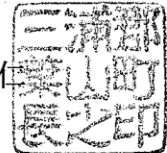 三浦郡
葉山町
長之印